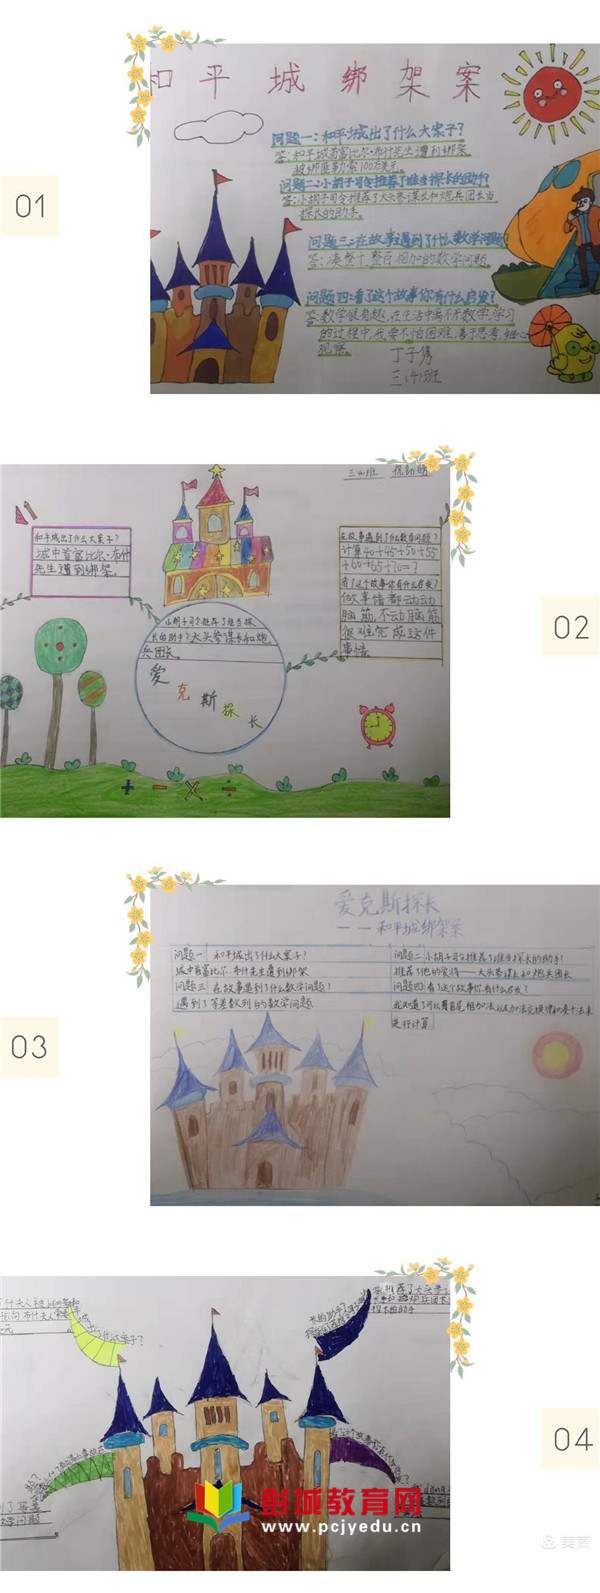 01
和平城绑架案
问题一:和平城出了什么大案子?
答:和平城首富比尔·布什先生遭到绑架
被绑匪勒索100万美元。
问题二:小胡子司令推荐了谁当探长的助手?
答:小胡子司令推荐了大头参谋长和炮兵团长当
探长的助手。
问题三:在故事遇到了什么数学问题?
答:凑整十、整百相加的数学问题。
问题四:看了这个故事你有什么启发?
答:数学很有趣,在生活中离不开数学,学习
的过程中,我要不怕困难,善于思考,细心
观察。
丁子隽
三(4)班
02
三(4)班
和平城出了什么大案子?
城中首富比尔·布什
先生遭到绑架。
小胡子司令推荐了谁当探
长的助手?大头参谋长和炮
兵团长。
爱克斯探长
在故事遇到了什么数学问题?
计算40+45+50+55
+60+65+70=?
看了这个故事你有什么启发?
做事情都动动
脑筋,不动脑筋
很难完成这件
事情
+ - × ÷
03
爱克斯探长
——和平城绑架案
问题一 和平城出了什么大案子?
城中首富比尔·布什先生遭到绑架
问题二 小胡子司令推荐了谁当探长的助手?
推荐了他的爱将——大头参谋长和炮兵团长
问题三 在故事遇到了什么数学问题?
遇到了等差数列的数学问题
问题四 看了这个故事你有什么启发?
我知道了可以用首尾相加法以及加法交换律和凑十法来
进行计算
04
推荐了大头参
炮兵团长
探长的助手
学问题
彭城教育网
www.pcjyedu.cn
美篇